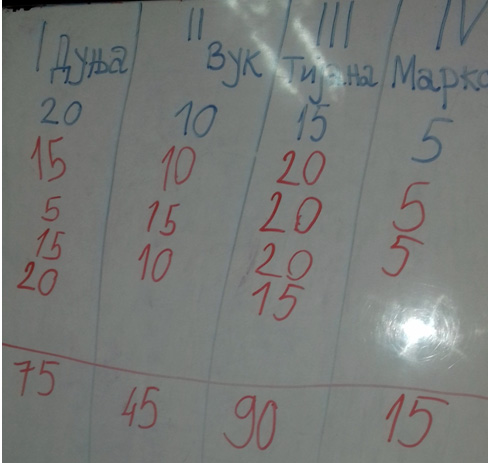 I II III IV
Дуња Вук Тијана Марко
20 10 15 5
15 10 20
5 15 20 5
15 10 20 5
20 15
75 45 90 15